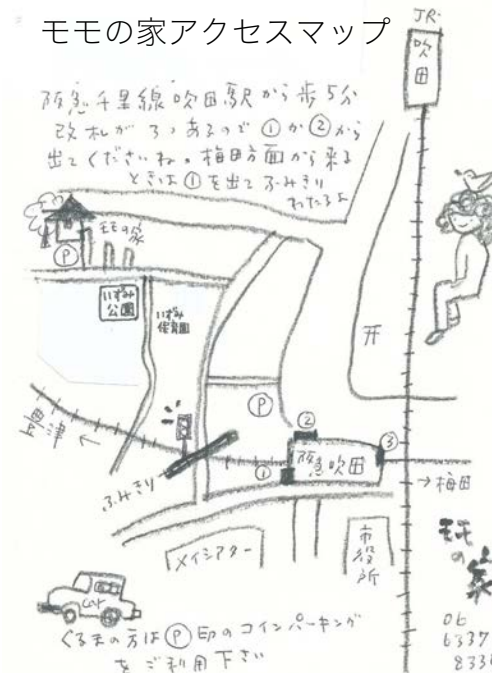 モモの家アクセスマップ
JR
吹田
阪急千里線吹田駅から歩5分
改札が3つあるので①か②から
出てくださいね。梅田方面から来る
ときは①を出てふみきり
わたるよ
モモの家
P
いずみ
公園
いずみ
保育園
P
②
③
阪急吹田
①
→梅田
←
ふみきり
メイシアター
市役所
モモの家
06
6337
くるまの方はP印のコインパーキング
をご利用下さい